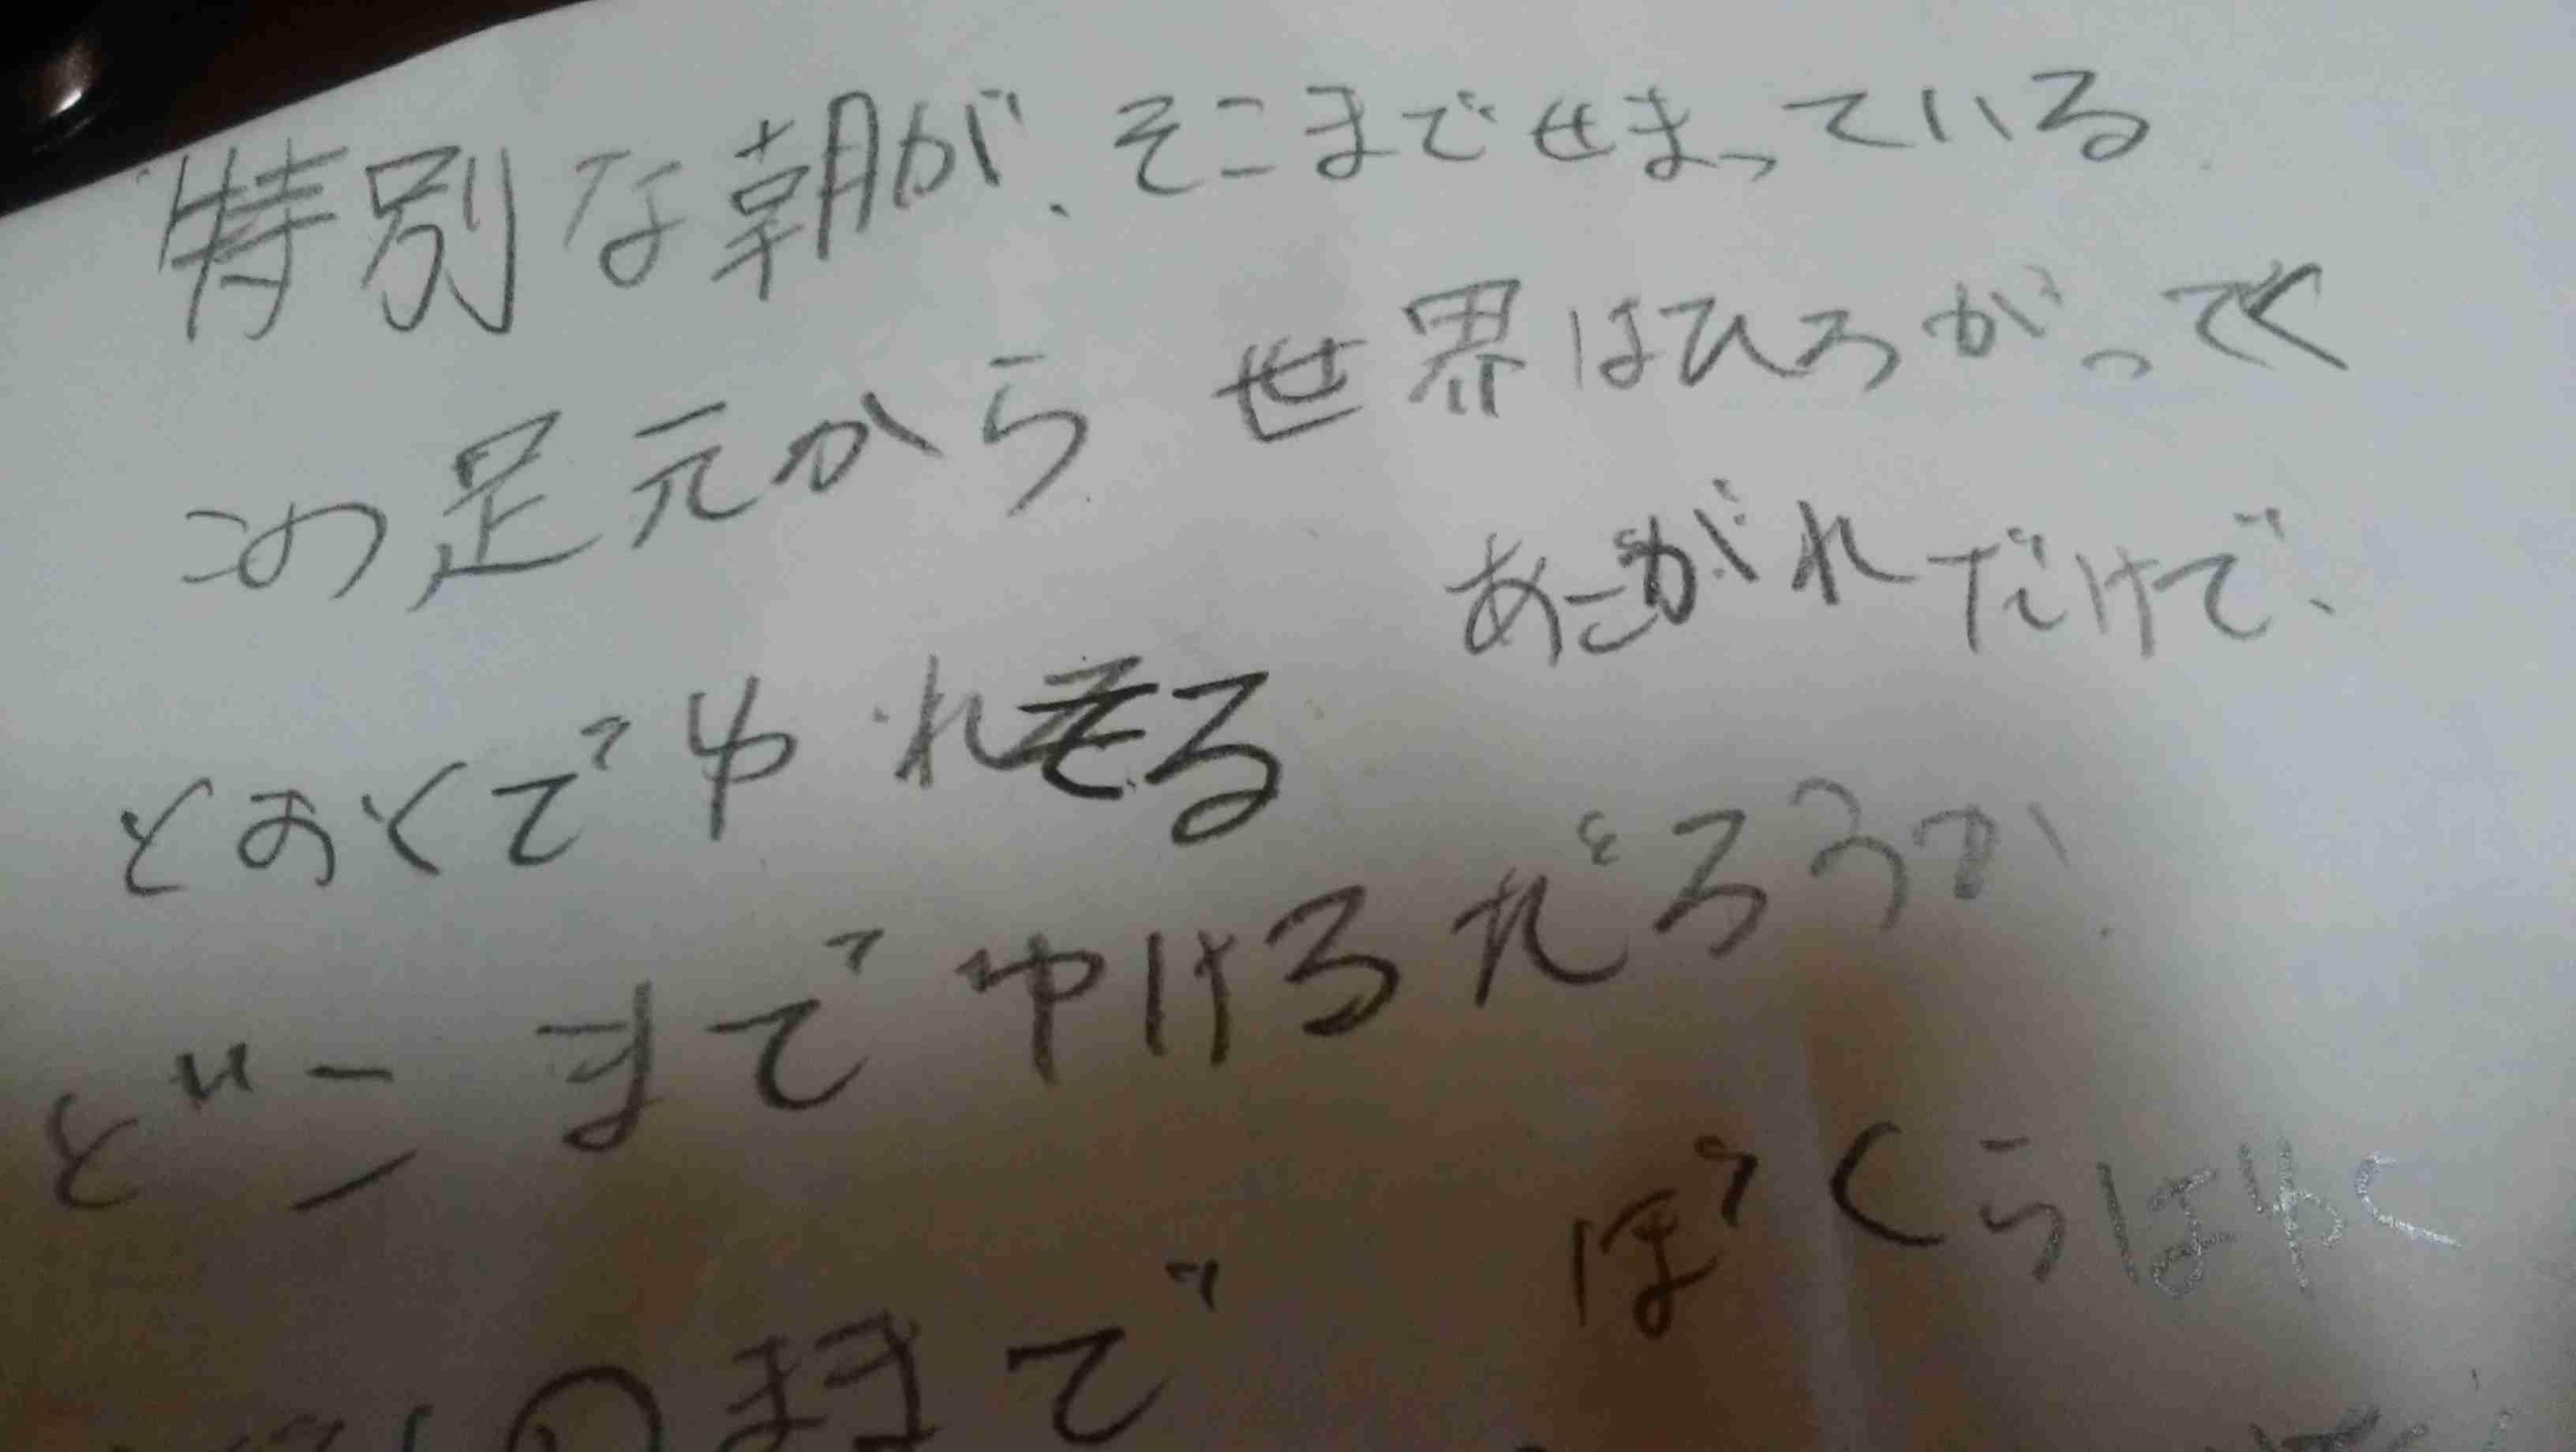 特別な朝が、そこまでせまっている
この足元から 世界はひろがってく
あこがれだけで、
とおくでゆれてる
どこまでゆけるだろうか
ぼくらはゆく
のままで